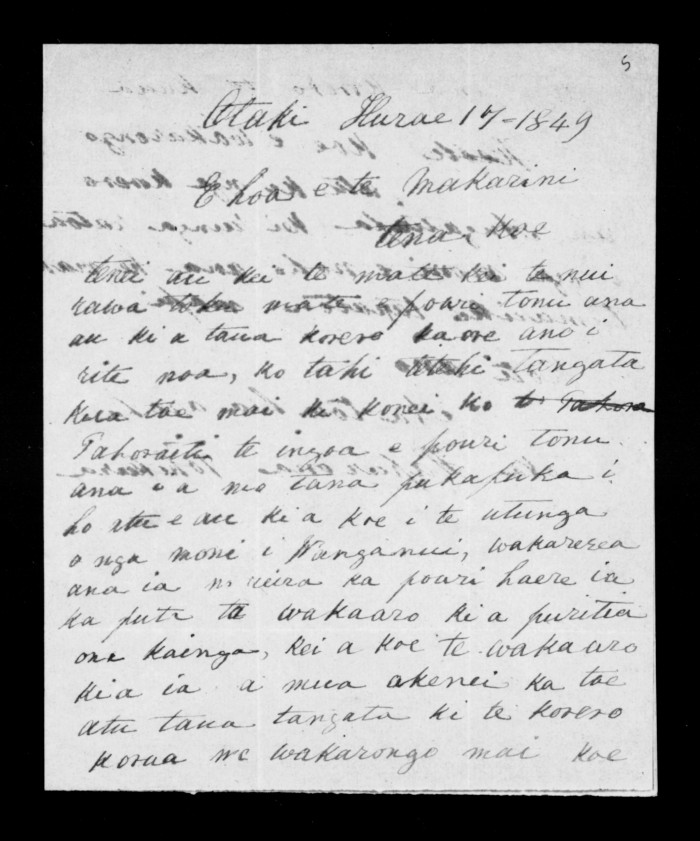 5
Otaki Hurae 17-1849
E hoa e te Makarini
tena, koe
tenei au kei te mate kei te nui
rawa toku mate e pouri tonu ana
au ki a taua korero kaore ano i
rite noa, ko tahi tangata
kua tae mai ki konei ko te Tahora
Tahoraiti te ingoa e pouri tonu
ana i a mo tana pukapuka i
ho atu e au ki a koe i te utunga
o nga moni i Wanganui, wakarerea
ana ia no reira ka pouri haere ia
ka puta te wakaaro ki a puritia
ona kainga, kei a koe te wakaaro
ki a ia a mua akenei ka tae
atu taua tangata ki te korero
korua me wakarongo mai koe